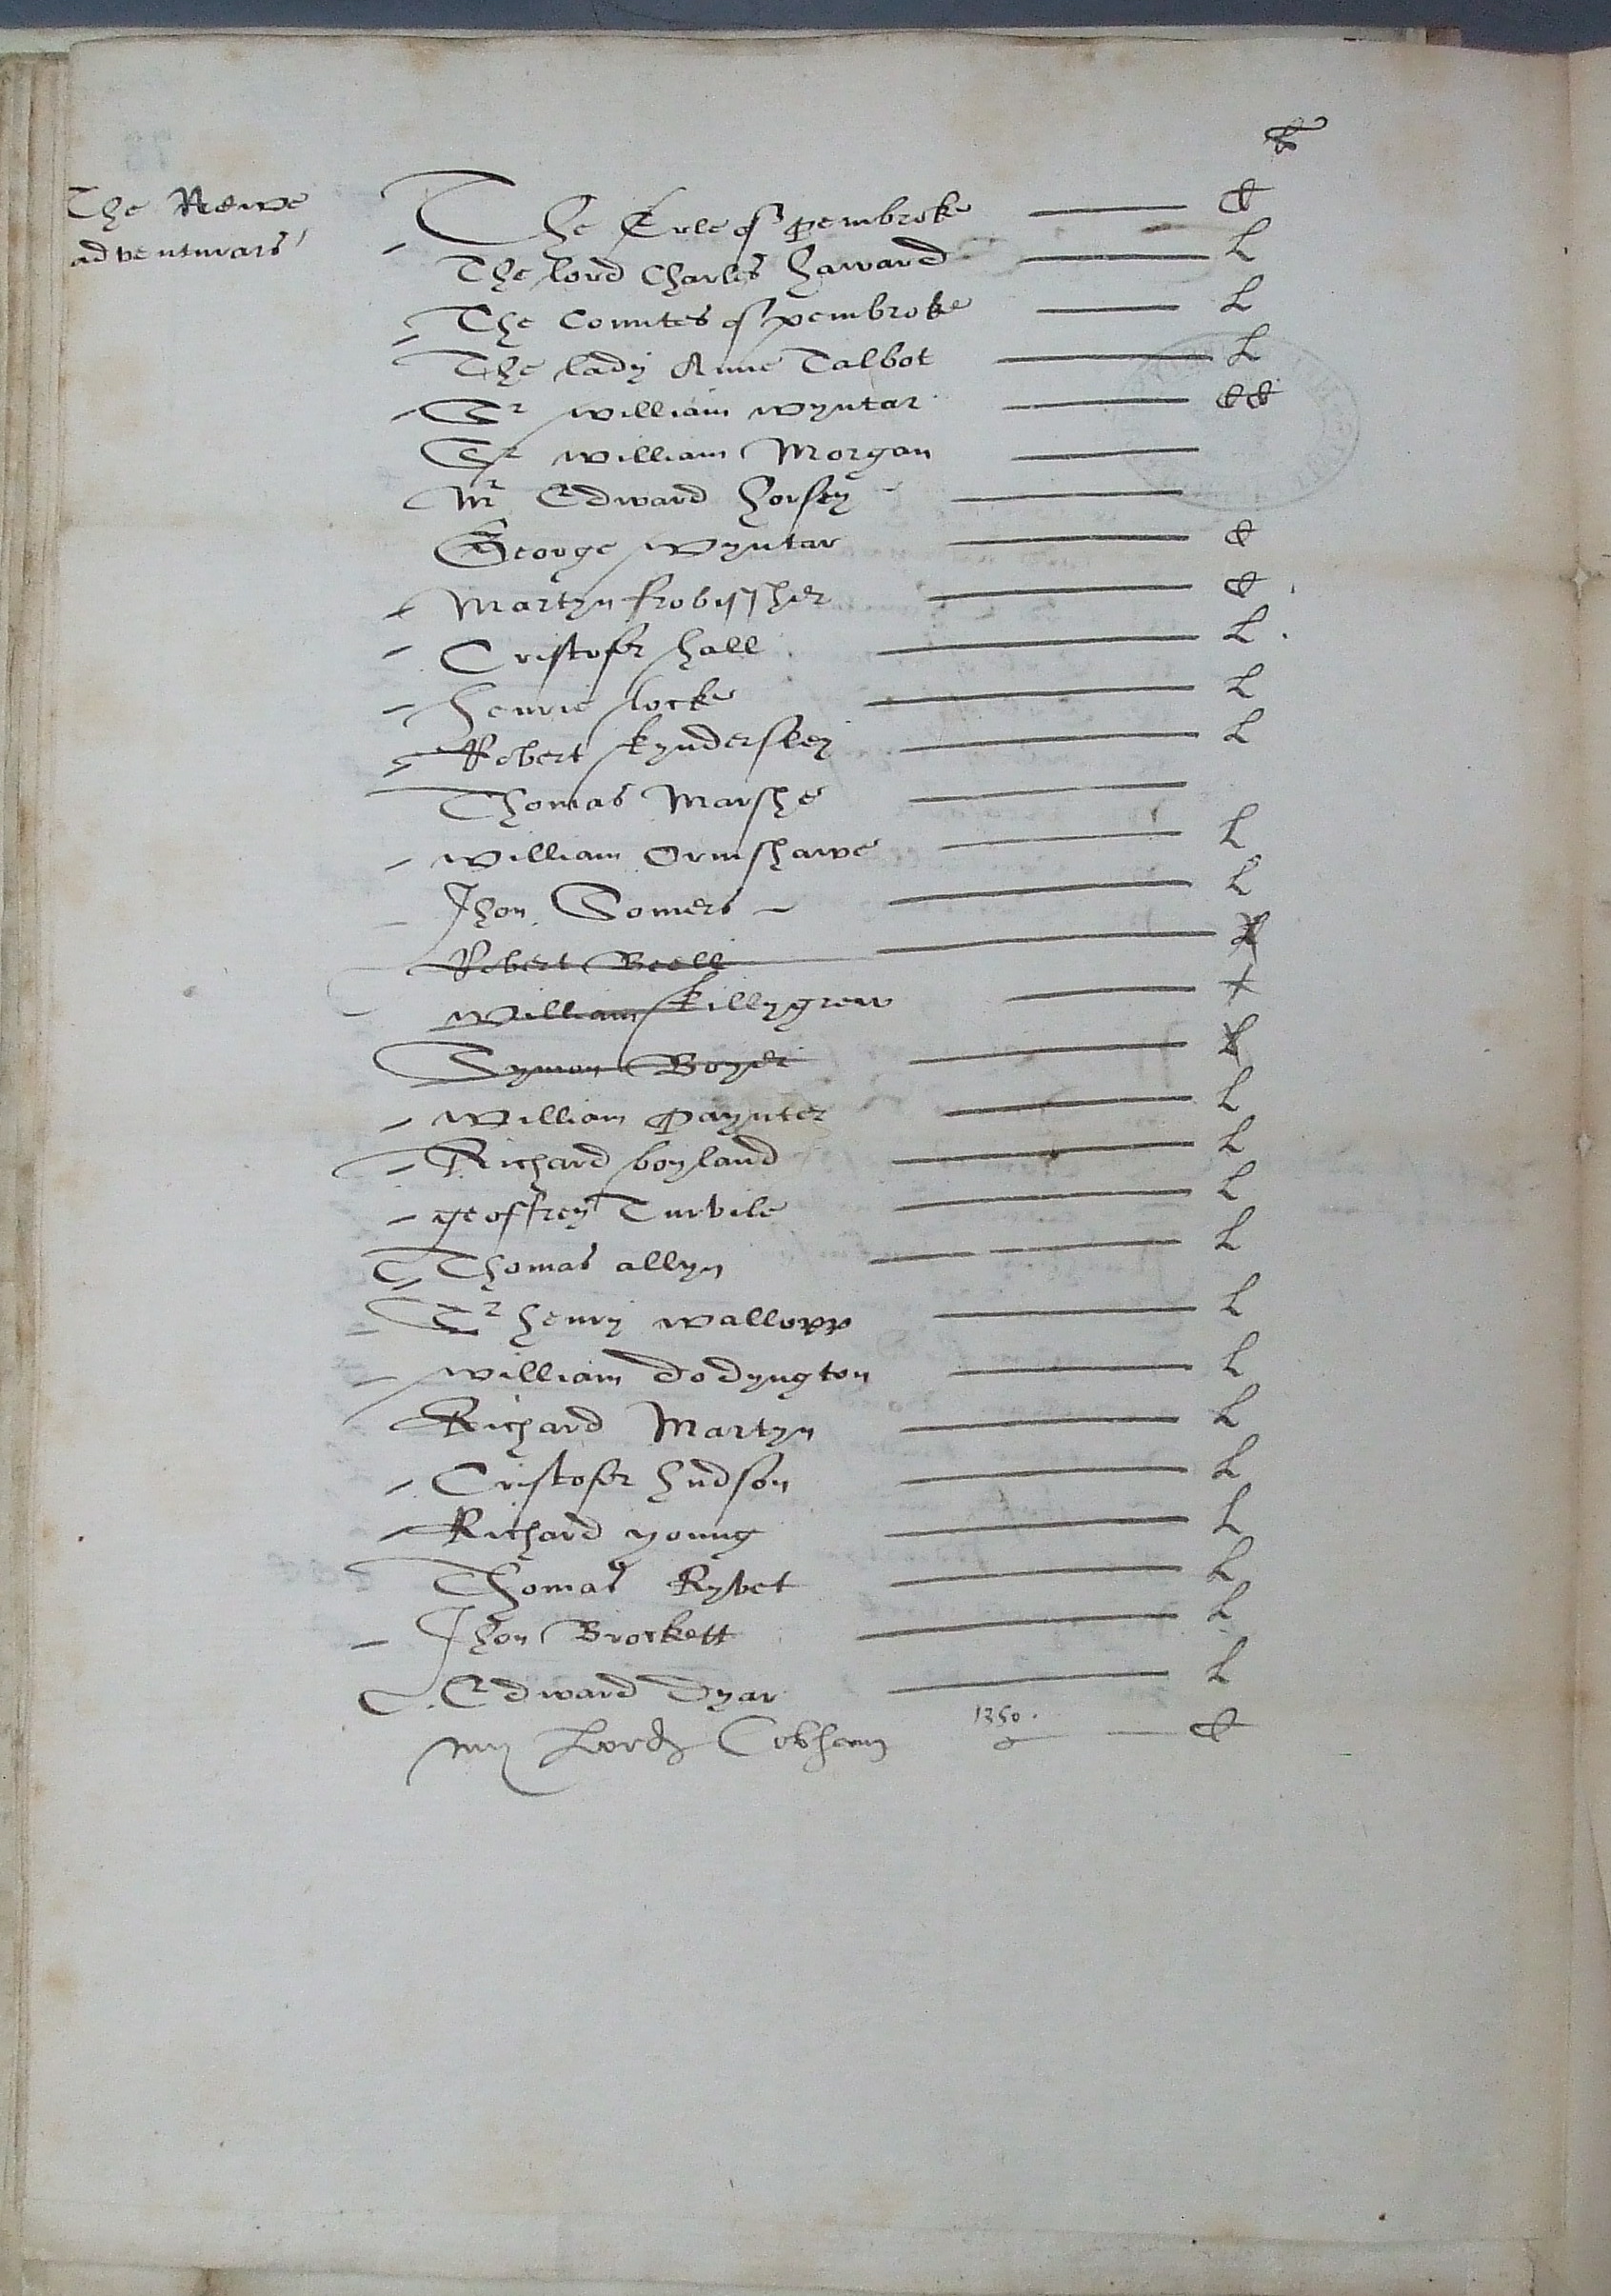 li
The Newe
adventurars
The Erle of pembroke C
The lord Charles Haward L
The Countes of pembroke L
The lady Anne Talbot L
Sr william wyntar CC
Sr william Morgan
Mr Edward horsey
George wyntar C
Martyn frobissher C
Cristofer hall L
henrie locke L
Robert kyndersley L
Thomas Marshe
william Ormshawe L
Jhon Somers L
Robert Beell
william killygrew
Symon Boyer L
william paynter L
Richard boyland L
geoffrey Turvile L
Thomas allyn L
Sr henry wallopp L
william dodyngton L
Richard Martyn L
Cristofer hudson L
Richard young L
Thomas Ryvet L
Jhon Brockett L
Edward dyar L
1350.
my Lord Cobham C